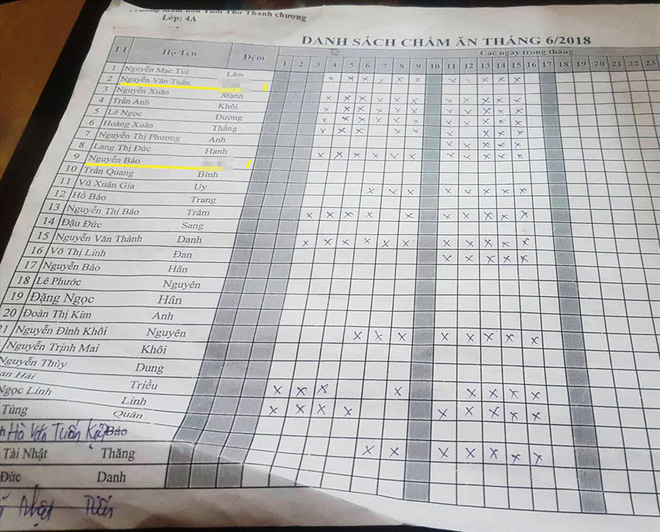 Trường mầm non Tuổi Thơ Thanh chương
Lớp: 4A
DANH SÁCH CHẤM ĂN THÁNG 6/2018
TT Họ Tên Đệm Các ngày trong tháng
1 2 3 4 5 6 7 8 9 10 11 12 13 14 15 16 17 18 19 20 21 22 23
1 Nguyễn Mạc Tuệ Lâm
2 Nguyễn Văn Tuấn
3 Nguyễn Xuân Mạnh
4 Trần Anh Khôi
5 Lê Ngọc Đường
6 Hoàng Xuân Thắng
7 Nguyễn Thị Phương Anh
8 Lang Thị Đức Hạnh
9 Nguyễn Bảo
10 Trần Quang Bình
11 Vũ Xuân Gia Uy
12 Hồ Bảo Trang
13 Nguyễn Thị Bảo Trâm
14 Đậu Đức Sang
15 Nguyễn Văn Thành Danh
16 Võ Thị Linh Đan
17 Nguyễn Bảo Hân
18 Lê Phước Nguyên
19 Đặng Ngọc Hân
20 Đoàn Thị Kim Anh
21 Nguyễn Đình Khôi Nguyên
Nguyễn Trịnh Mai Khôi
Nguyễn Thùy Dung
Hải Triều
Ngọc Linh Linh
Tùng Quân
Hồ Văn Tuấn Kiệt Bảo
Tài Nhật Thăng
Đức Danh
Nhật Tiến